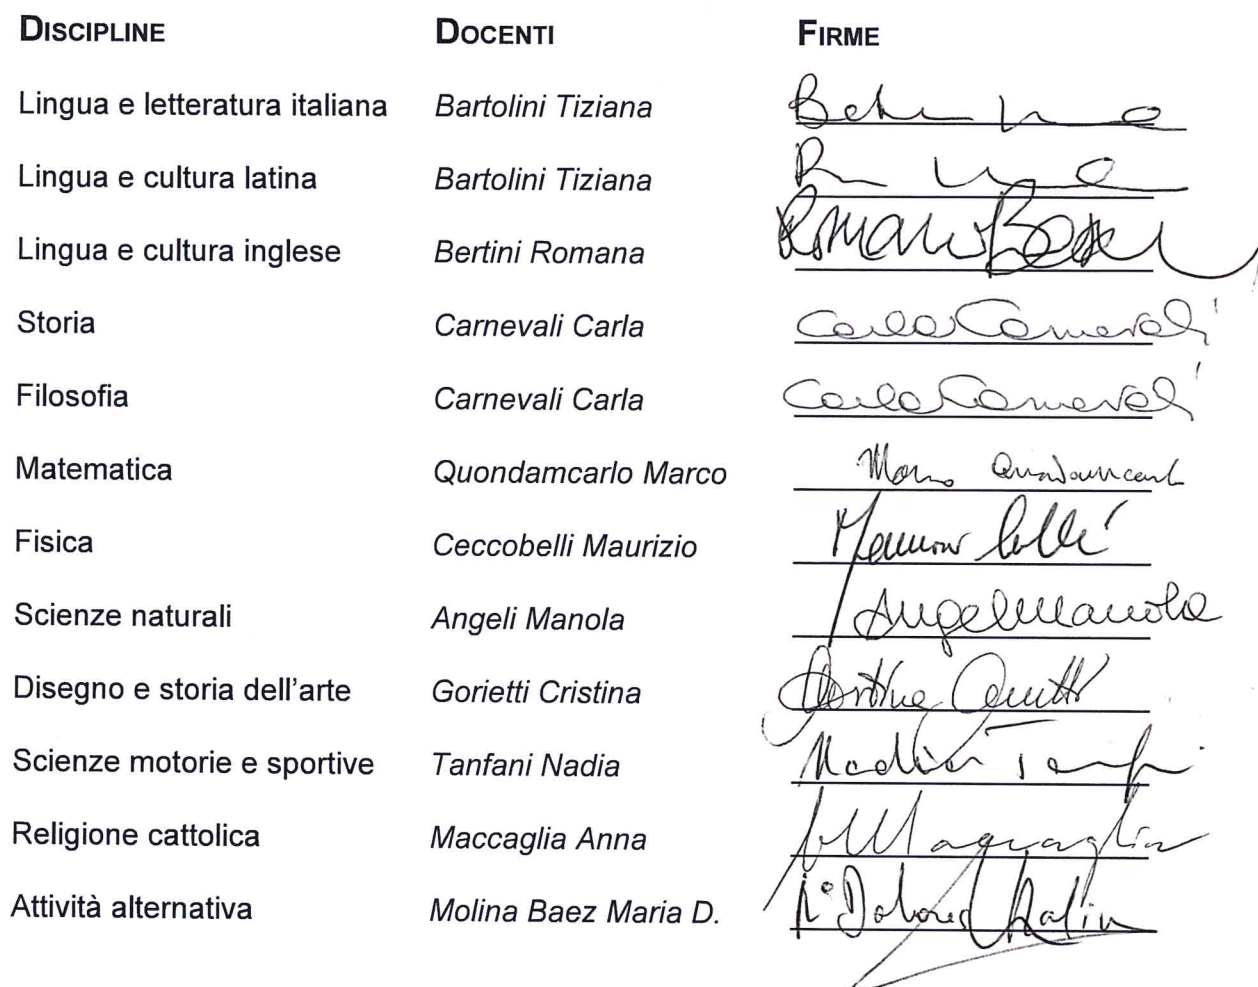 DISCIPLINE DOCENTI FIRME
Lingua e letteratura italiana Bartolini Tiziana
Lingua e cultura latina Bartolini Tiziana
Lingua e cultura inglese Bertini Romana Romana
Storia Carnevali Carla Carla Carnevali
Filosofia Carnevali Carla Carla Carnevali
Matematica Quondamcarlo Marco Marco Quondamcarlo
Fisica Ceccobelli Maurizio
Scienze naturali Angeli Manola Angeli Manola
Disegno e storia dell'arte Gorietti Cristina Cristina
Scienze motorie e sportive Tanfani Nadia Nadia
Religione cattolica Maccaglia Anna Maccaglia
Attività alternativa Molina Baez Maria D. Mª Dolores Molina